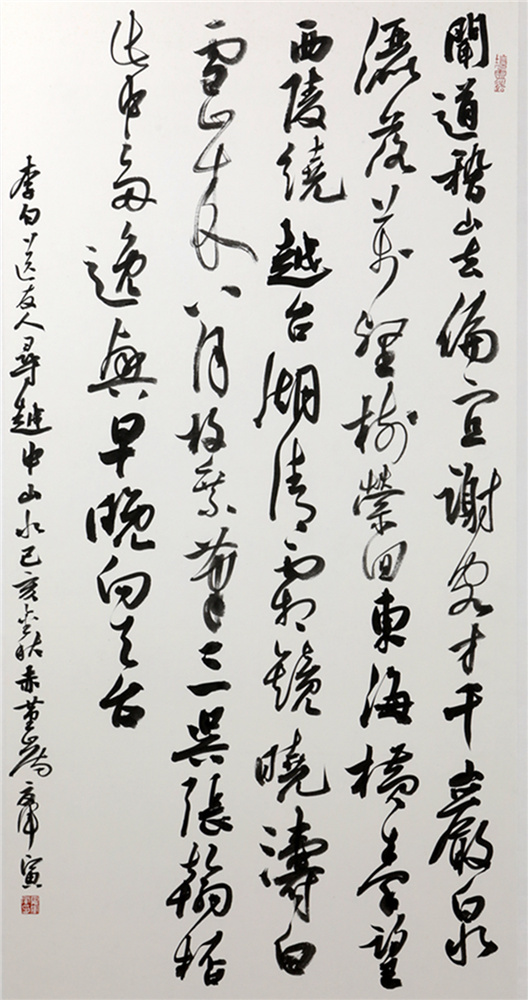 聞道稽山去偏宜謝客才千巖泉
灑落萬壑樹縈回東海橫秦望
西陵繞越台湖清霜鏡曉濤白
雪山來八月枚乘筆三吳張翰杯
此中多逸興早晚向天台
李白送友人尋越中山水己亥秋赤寅